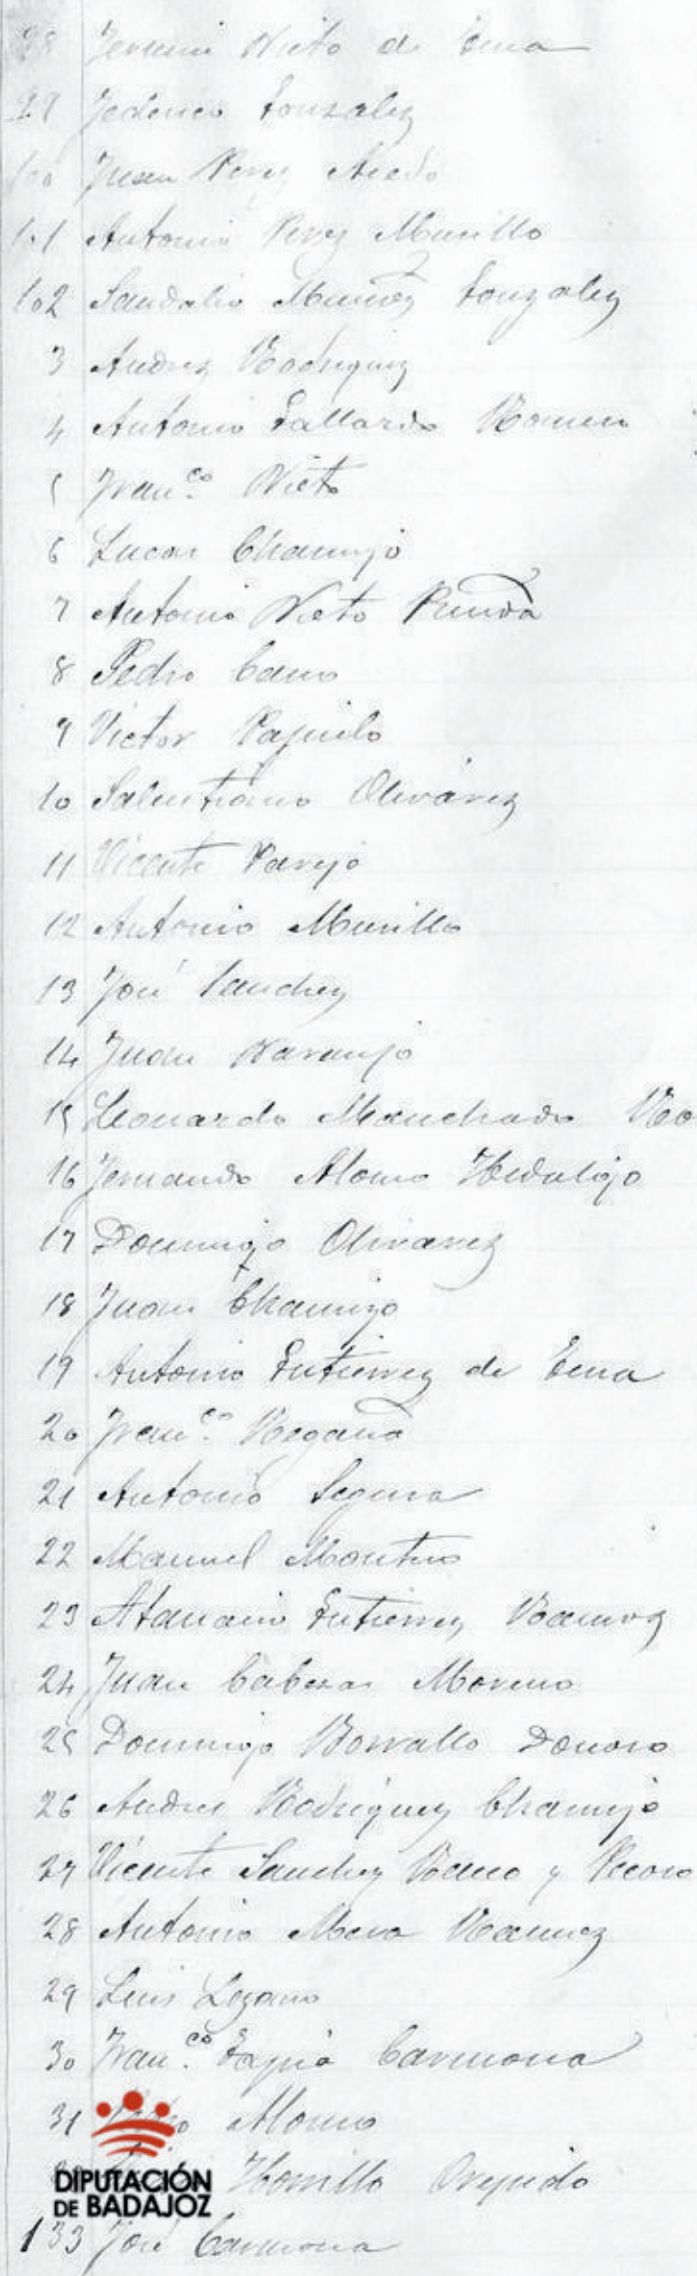 98 Jeronimo Nieto de Tena
99 Federico Gonzalez
100 Juan Perez Acedo
101 Antonio Perez Murillo
102 Sandalio Muñoz Gonzalez
3 Andrez Rodriguez
4 Antonio Gallardo Romero
5 Fran.co Nieto
6 Lucas Chamizo
7 Antonio Nieto
8 Pedro Cano
9 Victor Pajuelo
10 Salustiano Olivarez
11 Vicente Parejo
12 Antonio Murillo
13 José Sanchez
14 Juan Naranjo
15 Leonardo Manchado
16 Fernando Alonso Hidalgo
17 Domingo Olivarez
18 Juan Chamizo
19 Antonio Gutierrez de Tena
20 Fran.co Nogales
21 Antonio Segura
22 Manuel Montero
23 Atanacio Gutierrez Ramos
24 Juan Cabezas Moreno
25 Domingo Borrallo Donoso
26 Andres Rodriguez Chamizo
27 Vicente Sanchez y
28 Antonio Mera Ramirez
29 Luis Lozano
30 Fran.co Tapia Carmona
31 Alonso
DIPUTACIÓN
DE BADAJOZ
Horrillo
133 José Carmona